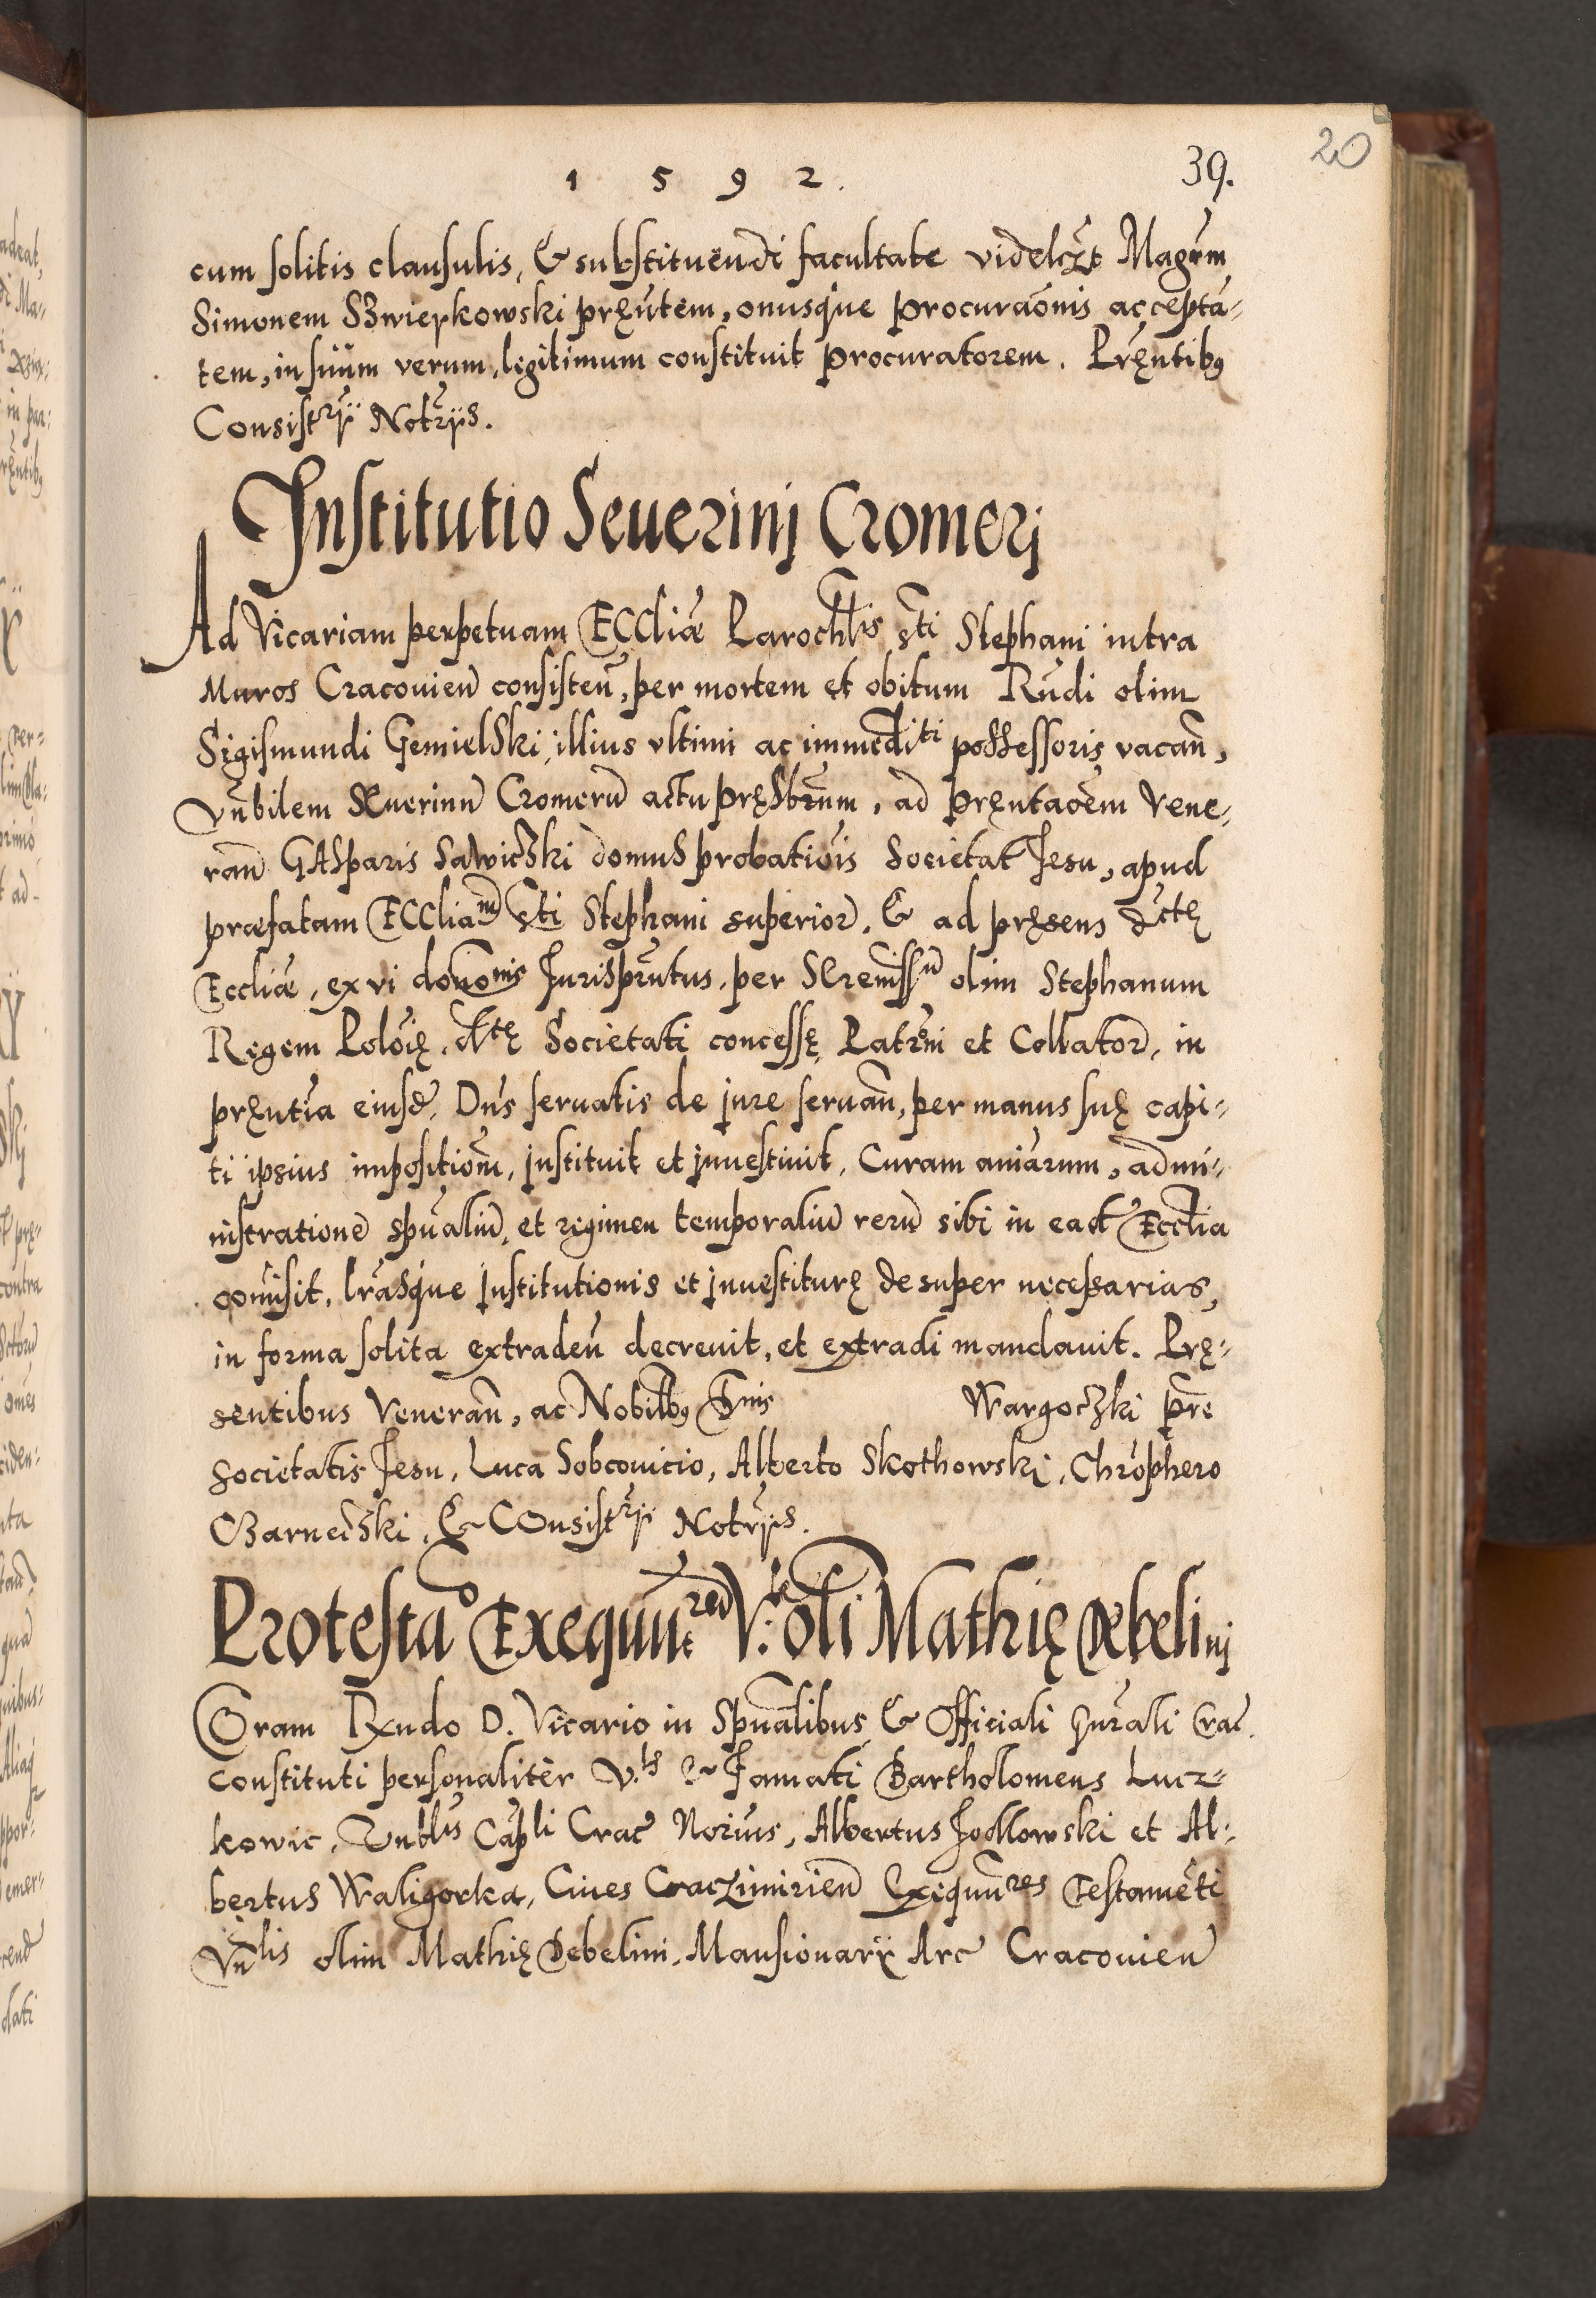 20
1 5 9 2.
39.
cum solitis clausulis, & substituẽndi facultate videlczt Magrm
Simonem Szwierkowski pręntem, onusque procuraõnis acceptã-
tem, in suũm verum, legitimum constituit procuratorem. Pręntibꝫ
Consistrij Notrijs.
Institutio Seuerinj Cromerj
Ad Vicariam perpetuam Eccliæ Parochlis Sti Stephani intra
muros Cracovien̄ consisten̄, per mortem et obitum Rndi olim
Sigismundi Gemielski, illius vltimi ac immediti possessoris vacan̄,
Vnbilem Seuerinū Cromerū actu pręsbrum, ad pręntaõem Vene-
ran̄ Gasparis Sawiczki domus probationis Societat Jesu, apud
præfatam Ecclia͠m Sti Stephani superior, & ad pręsens dctę
Eccliæ, ex vi donõnis Jurisprntus, per Sereniss͠ olim Stephanum
Regem Polõię, dctę Societati concessę, Patrni et Collator, in
pręntia eiusd, Dn̄s seruatis de jure seruan̄, per manus suę capi-
ti ipsius impositiom̄, jnstituit et jnuestiuit, Curam aniãrum, admi-
nistrationē spũaliū, et regimen temporaliū rerū sibi in ead Ecclia
com̄isit, lrasque jnstitutionis et jnuestiturę desuper necessarias,
in forma solita extraden̄ decreuit, et extradi mandauit. Prę-
sentibus Veneran̄, ac Nobilbꝫ Dnis Wargoczki Pre
Societatis Jesu, Luca Sobcouicio, Alberto Skothowski, Chrõphero
Czarnedzki, & Consistrij Notrijs.
Protestaõ Exequutreu V: oli Mathię Debelinj
Coram Rxndo D. Vicario in Spũalibus, & Officiali Gnrali Crac.
constituti personaliter V.ls & Famati Bartholomeus Lucz-
kowic, Vnblis Capli Crac Norius, Albertus et Al-
bertus Waligorka, Ciues Craczimirien̄ Exequutres Testamẽti
Vnlis olim Mathię Debelini, Mansionarij Arc Cracouien̄